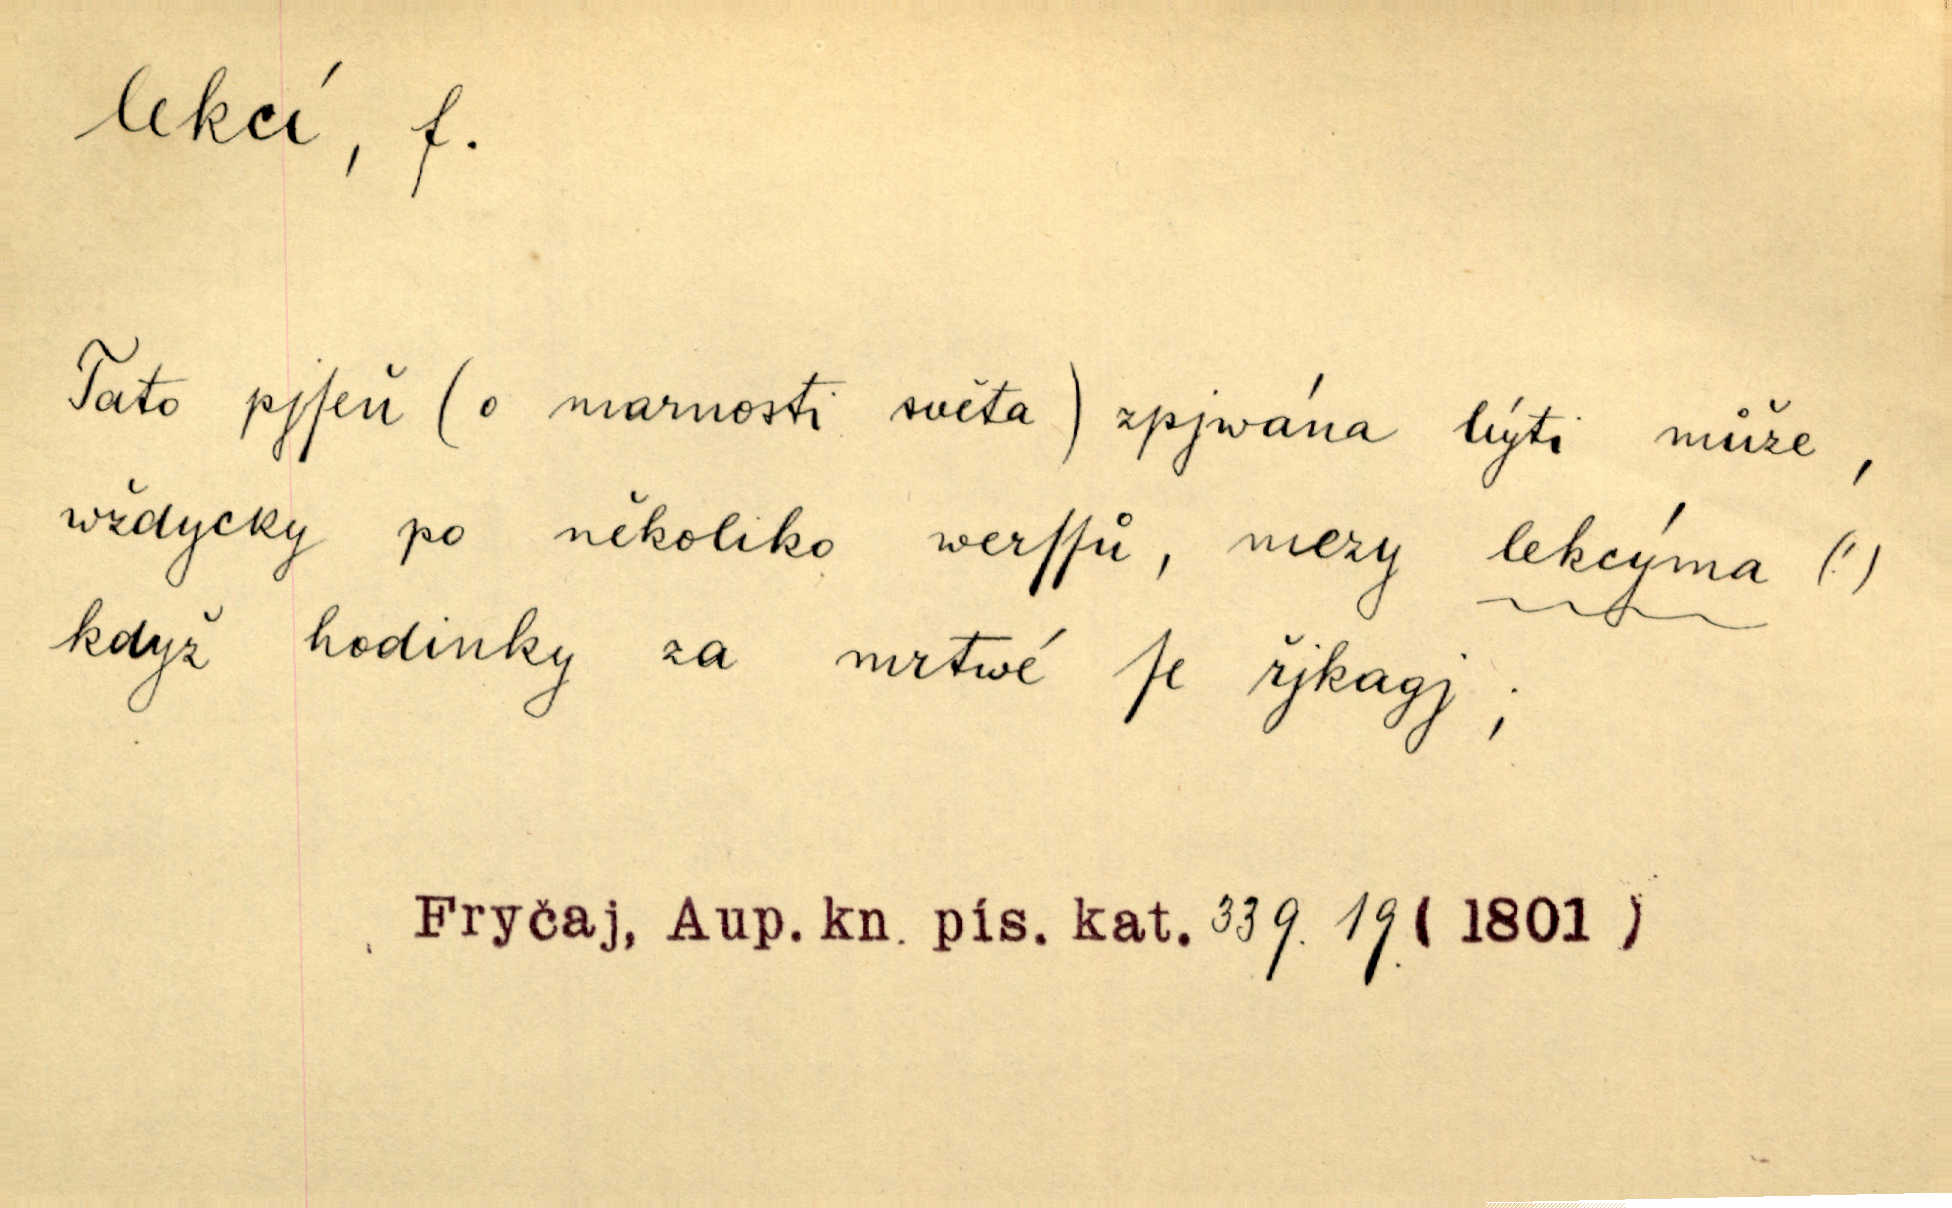 lekcí, f.
Tato pjſeň (o marnosti světa) zpjwána býti může,
wždycky po několiko werſſů, mezy lekcýma (!)
když hodinky za mrtwé ſe řjkagj;
Fryčaj, Aup. kn. pís. kat. 339. 19 (1801)